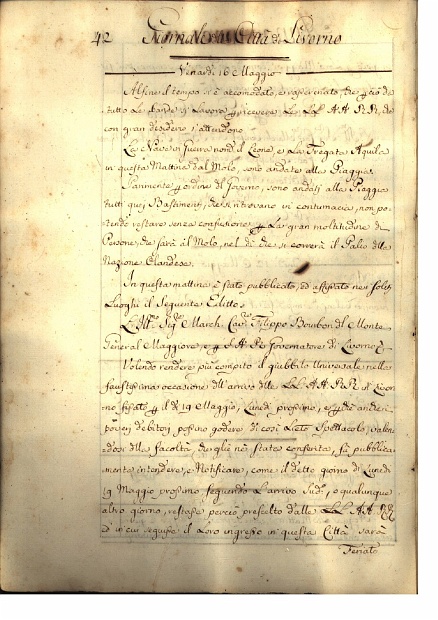 42 Giornale della Città di Livorno
Venerdì 16 Maggio
Alfine il tempo si è accomodato, e rasserenato, che per ciò da
tutte le bande si lavora per ricevere le LL. AA. RR., che
con gran desiderio s'attendono
La Nave in guerra nom.a il Leone, e la Fregata Aquila
in questa Mattina dal Molo, sono andate alla Piaggia
Parimente per ordine di Governo, sono andati alla Piaggia
tutti quei Bastimenti, che si ritrovano in contumacia, non po-
tendo restare senza confusione per la gran moltitudine di
Persone, che sarà al Molo, nel dì che si correrà il Palio della
Nazione Olandese.
In questa mattina è stato pubblicato, ed affissato nei soliti
Luoghi il Seguente Editto.
L'Ill.mo Sig.re March. Cav.re Filippo Bourbon del Monte
General Maggiore, e per S. A. R. Governatore di Livorno
Volendo rendere più compito il giubbilo Universale nella
faustissima occasione dell'arrivo delle LL. AA. RR. in Livor-
no fissato per il dì 19 Maggio, Lunedì prossimo, e perché anche i
poveri debitori possino godere di così lieto Spettacolo, valen-
dosi della facoltà, che gli è stata conferita, fà pubblica-
mente intendere, e Notificare, come il detto giorno di Lunedì
19 Maggio prossimo seguendo l'arrivo Sud.o, o qualunque
altro giorno, restasse perciò prescelto dalle LL. AA. RR.
in cui seguisse il Loro ingresso in questa Città sarà
Feriato